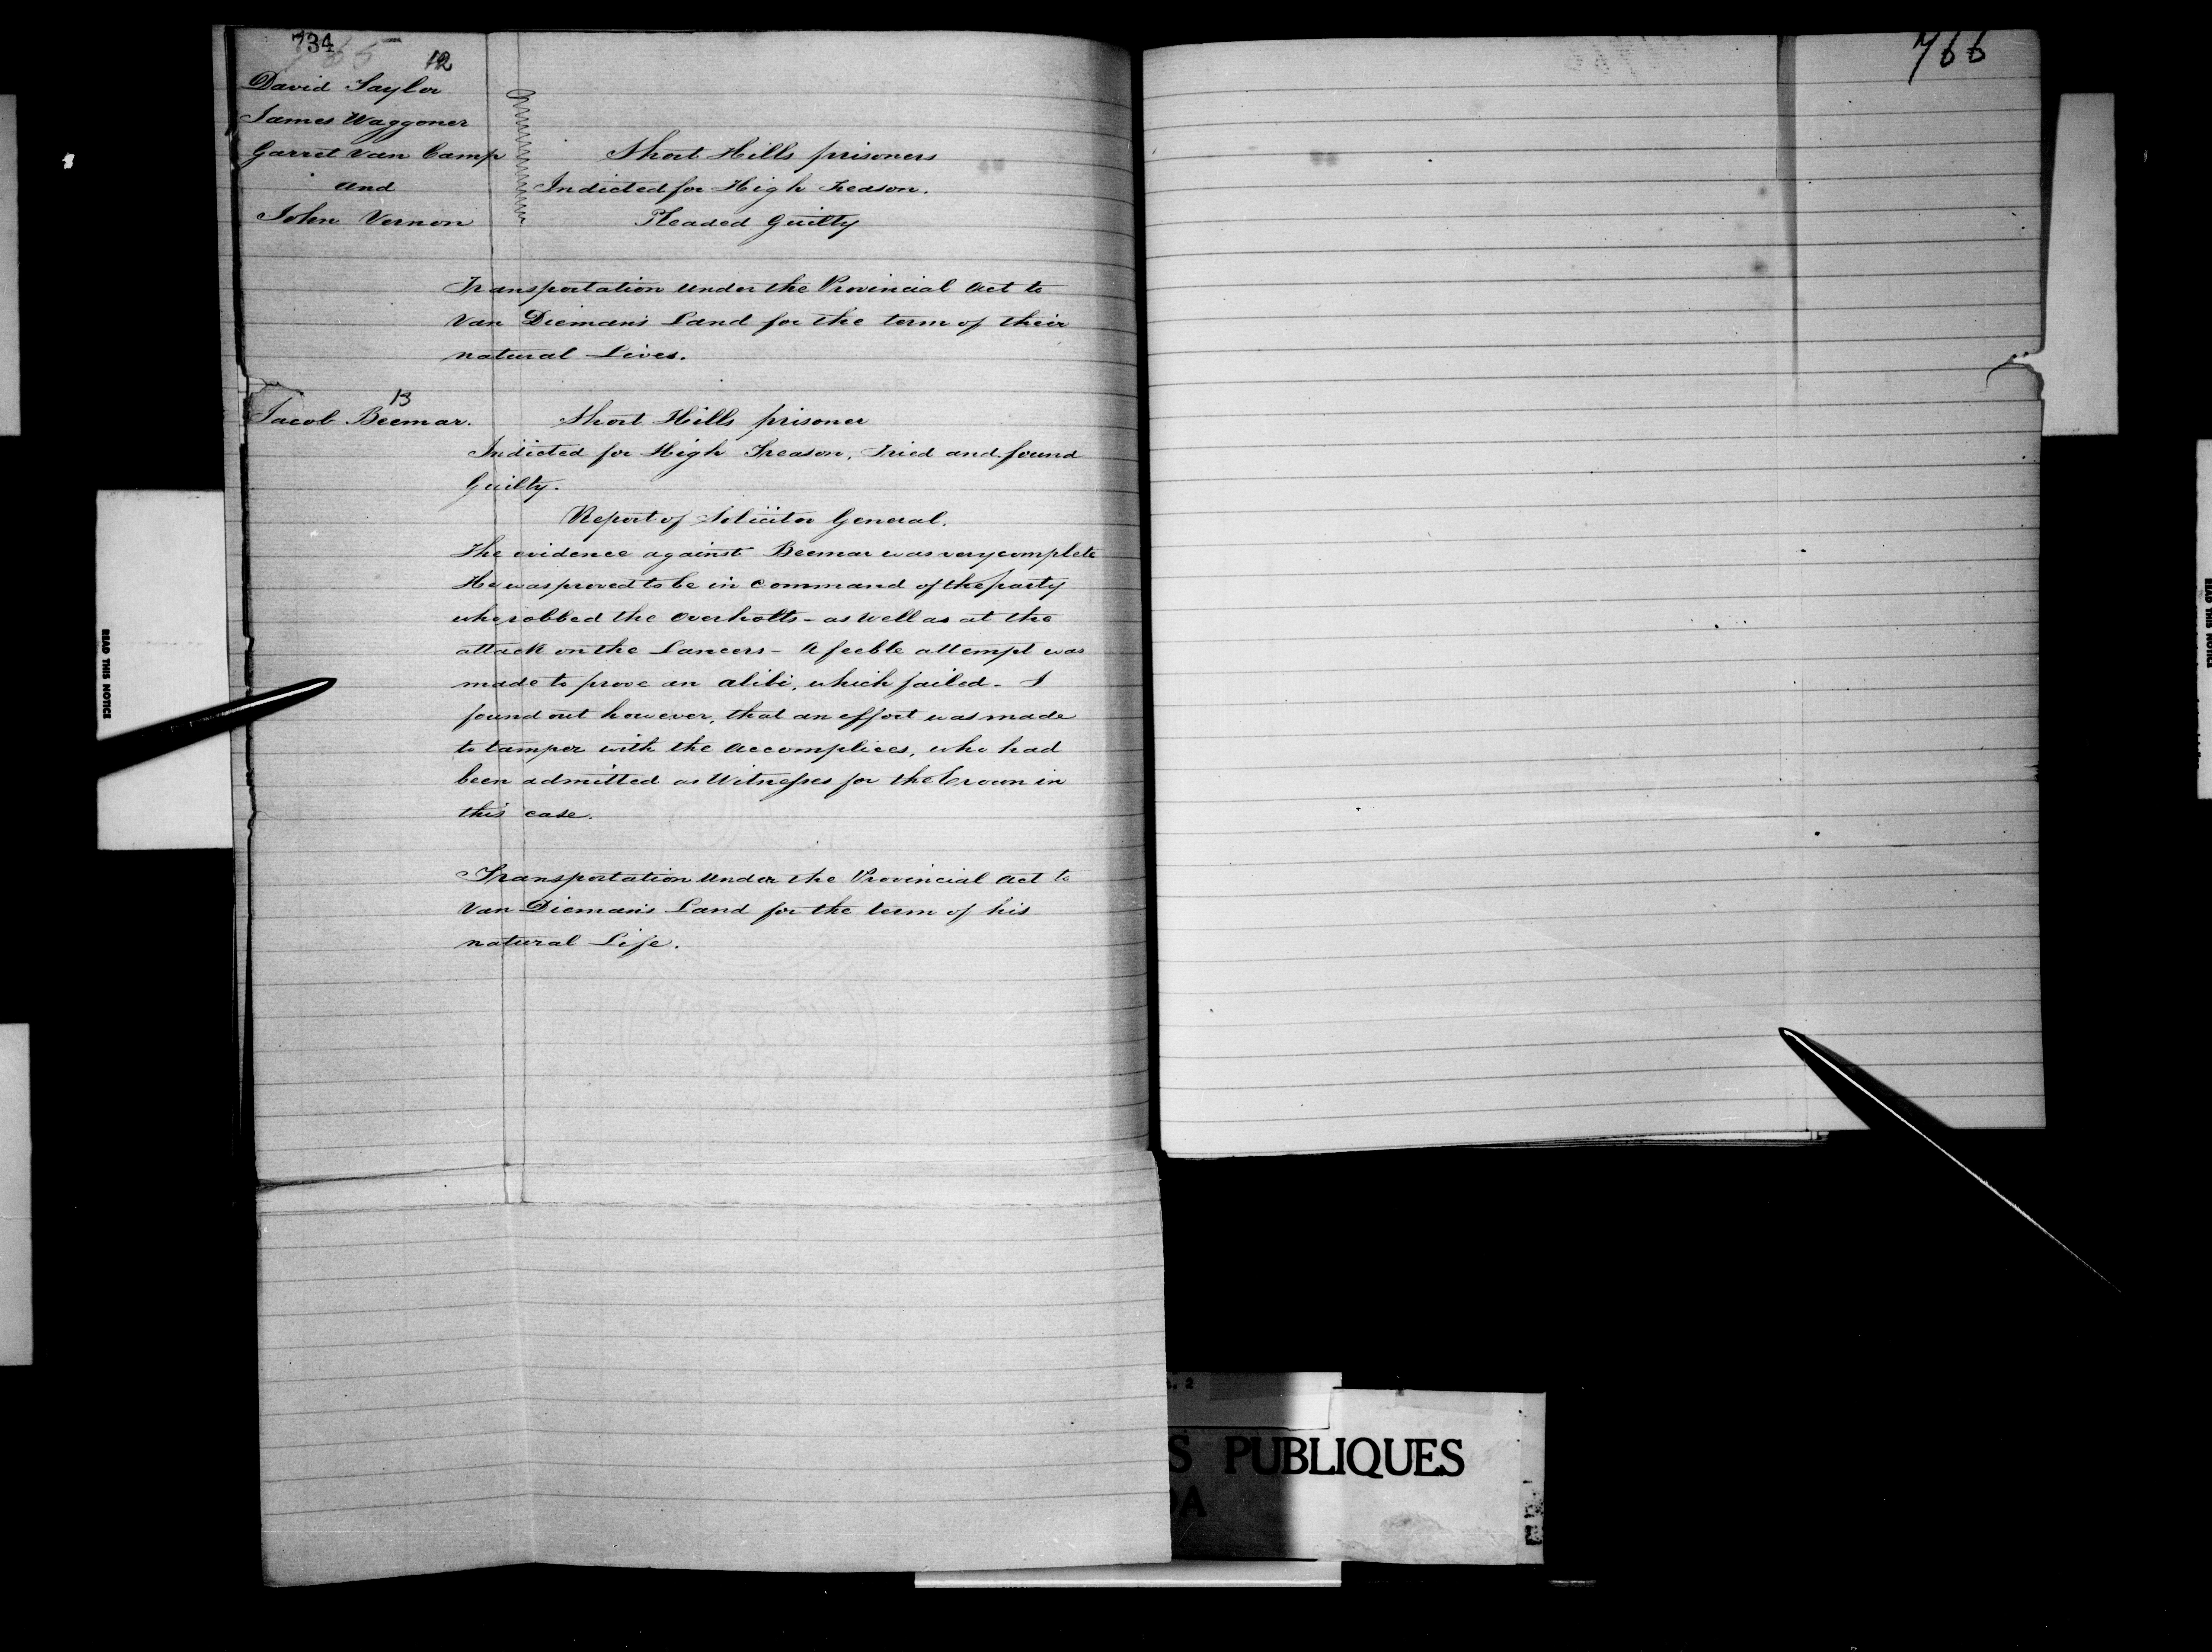 734
765
12
David Taylor
James Waggoner
Garret Van Camp
and
John Vernon
Short Hills prisoners
Indicted for High Treason.
Pleaded Guilty
Transportation under the Provincial Act to
Van Dieman's Land for the term of their
natural Lives.
13
Jacob Beemar.
Short Hills prisoner
Indicted for High Treason, Tried and found
Guilty.
Report of Solicitor General.
The evidence against Beemar was very complete
He was proved to be in command of the party
who robbed the Overholts - as well as at the
attack on the Lancers - A feeble attempt was
made to prove an alibi, which failed - I
found out however, that an effort was made
to tamper with the accomplices, who had
been admitted as Witnesses for the Crown in
this case.
Transportation under the Provincial Act to
Van Dieman's Land for the term of his
natural Life.
766
READ THIS NOTICE
READ THIS NOTICE
. 2
S PUBLIQUES
DA